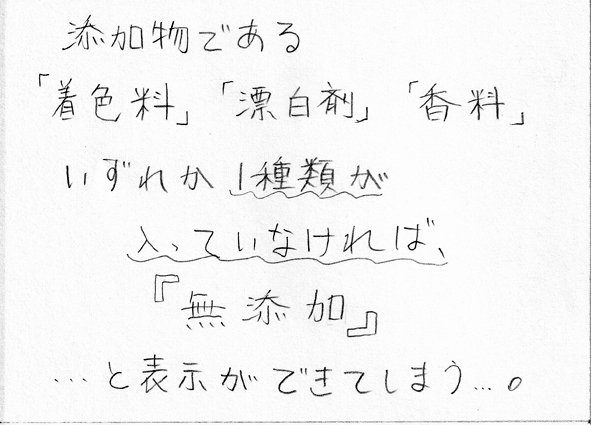 添加物である
「着色料」「漂白剤」「香料」
いずれか1種類が
入っていなければ、
『無添加』
…と表示ができてしまう…。